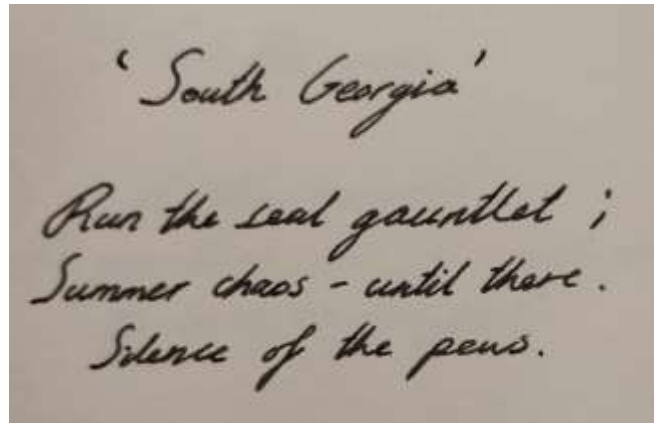 'South Georgia'
Run the seal gauntlet ;
Summer chaos - until there.
Silence of the pews.